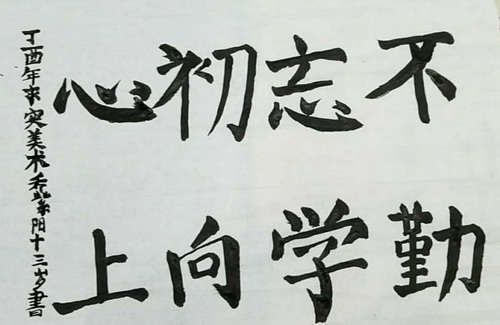 不忘初心
勤学向上
丁酉年求实美术阳十三岁書